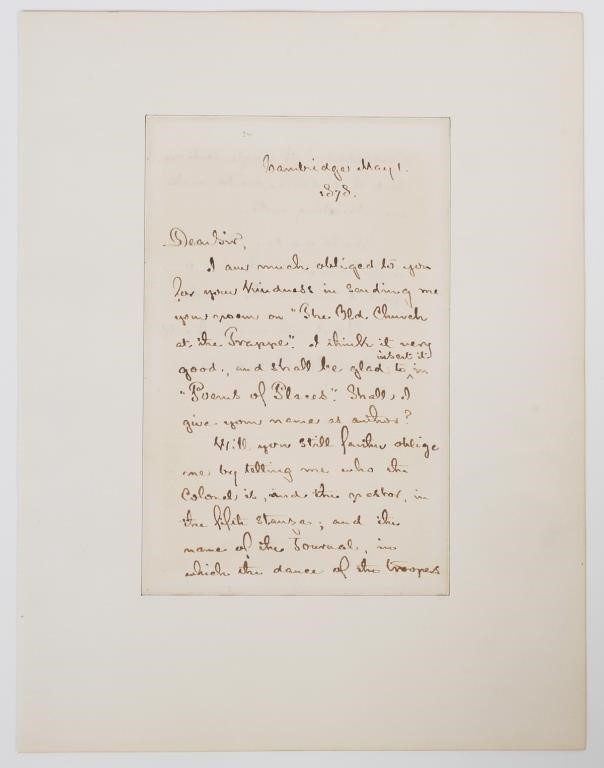 Cambridge May 1.
1878.
Dear Sir,
I am much obliged to you
for your kindness in sending me
your poem on "The Old Church
at the Trappe". I think it very
good, and shall be glad to insert it in
"Poems of Places". Shall I
give your name as author?
Will you still farther oblige
me by telling me who the
Colonel is, and the pastor, in
the fifth stanza; and the
name of the Journal, in
which the dance of the troopers